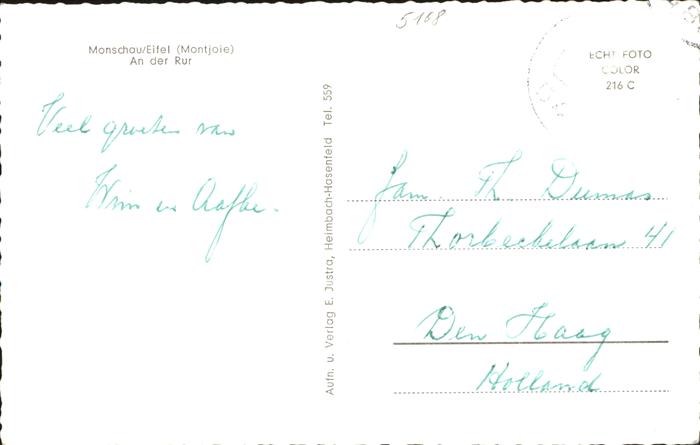 5168
Monschau/Eifel (Montjoie)
An der Rur
ECHT FOTO
COLOR
216 C
Veel groeten van
Wim en Aafke.
Aufn. u. Verlag E. Justra, Heimbach-Hasenfeld Tel. 559
Fam. Th. Dumas
Thorbeckelaan 41
Den Haag
Holland